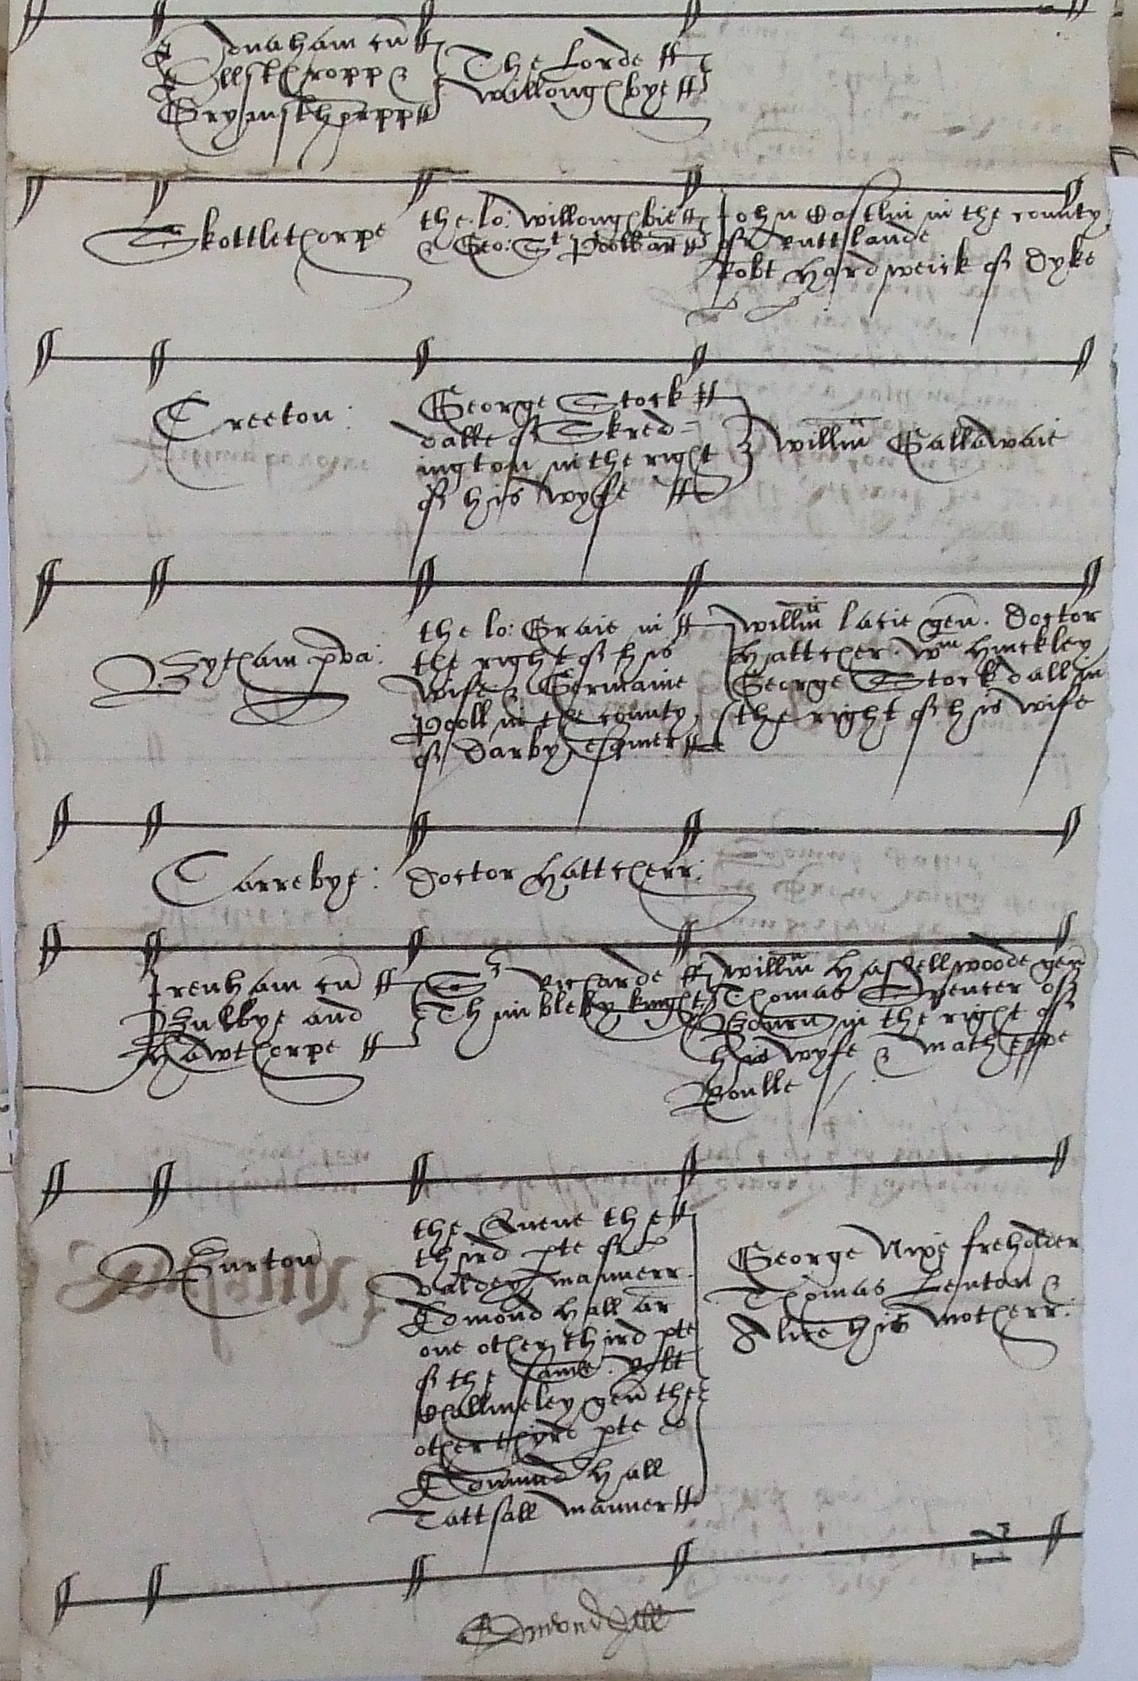 Edenham cu
Ellsthropp &
Grymsthorpp
The Lorde
Willoughbye
Skottlethorpe
the lo: Willoughbie
& Geo: St Pooll ar
John Castlin in the county
of Ruttlande
Robt Hardweick of Dyke
Creeton:
George Stock
dalle of Skred=
ington in the right
of his wyfe
Willm Gallawaie
Bytham pva:
the lo: Graie in
the right of his
wife & Germaine
Pooll in the county
of Darby esquier
Willm Lacie gen. Doctor
Hattcher. Wm Hinckley
George Stockdall in
the right of his wife
Carrebye:
Doctor Hattcherr:
Irenham cu
Bulbye and
Hawthorpe
Sr Richarde
Thimbleby knight
Willm Hassellwoode gen
Thomas Spencer of
Bourn in the right of
his wyfe & Math
Boulle
Burton
the Quene the
third pte of
Valdey mannerr
Edmond Hall ar
one other third pte
of the same. Robt
gen the
other thyrd pte
Edmund Hall
Tattsall manner
George Nixe freholder
Thomas Lenton &
Alice his motherr:
Edmond Hall